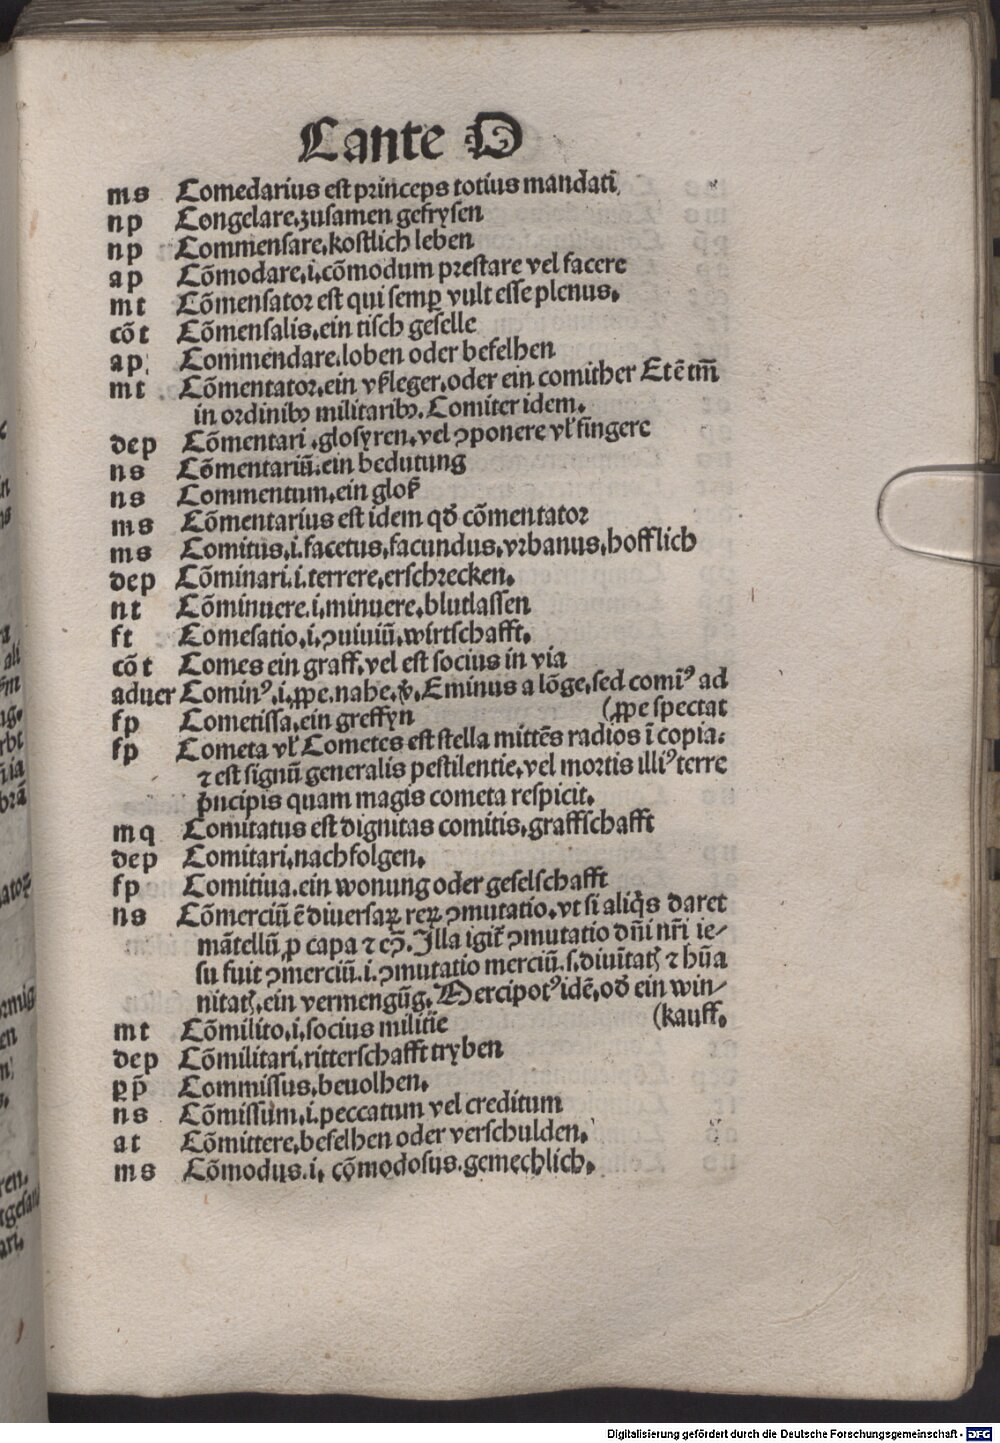 C ante O
ms Comedarius est princeps totius mandati
np Congelare.zusamen gefrysen
np Commensare.kostlich leben
ap Cōmodare.i.cōmodum prestare vel facere
mt Cōmensator est qui semꝑ vult esse plenus.
cōt Cōmensalis.ein tisch geselle
ap Commendare.loben oder befelhen
mt Cōmentator.ein vßleger.oder ein comither Etē tm̄
in ordinibꝰ militaribꝰ. Comiter idem.
dep Cōmentari.glosyren.vel ꝯponere vl' fingere
ns Cōmentariū.ein bedutung
ns Commentum.ein gloß
ms Cōmentarius est idem qd̄ cōmentator
ms Comitus.i.facetus.facundus.vrbanus.hofflich
dep Cōminari.i.terrere.erschrecken.
nt Cōminuere.i.minuere.blutlassen
ft Comesatio.i.ꝯuiuiū.wirtschafft.
cōt Comes ein graff.vel est socius in via
aduer Cominꝰ.i.ꝓpe.nahe.v̄. Eminus a lōge.sed comīꝰ ad
fp Cometissa.ein greffyn (ꝓpe spectat
fp Cometa vl' Cometes est stella mittēs radios ī copia.
⁊ est signū generalis pestilentie.vel mortis illiꝰ terre
p̄ncipis quam magis cometa respicit.
mq Comitatus est dignitas comitis.graffschafft
dep Comitari.nachfolgen.
fp Comitiua.ein wonung oder geselschafft
ns Cōmerciū ē diuersaꝝ reꝝ ꝯmutatio.vt si aliq̄s daret
mātellū ꝓ capa ⁊ eꝯ. Illa igit̄ ꝯmutatio dn̄i nr̄i ie⸗
su fuit ꝯmerciū.i.ꝯmutatio merciū.s.diuītatꝭ ⁊ hūa
nitatꝭ.ein vermengūg. Mercipotꝰ idē.od̄ ein win⸗
mt Cōmilito.i.socius militie (kauff.
dep Cōmilitari.ritterschafft tryben
ꝑp̄ Commissus.beuolhen.
ns Cōmissum.i.peccatum vel creditum
at Cōmittere.befelhen oder verschulden.
ms Cōmodus.i. cōmodosus.gemechlich.
Digitalisierung gefördert durch die Deutsche Forschungsgemeinschaft - DFG